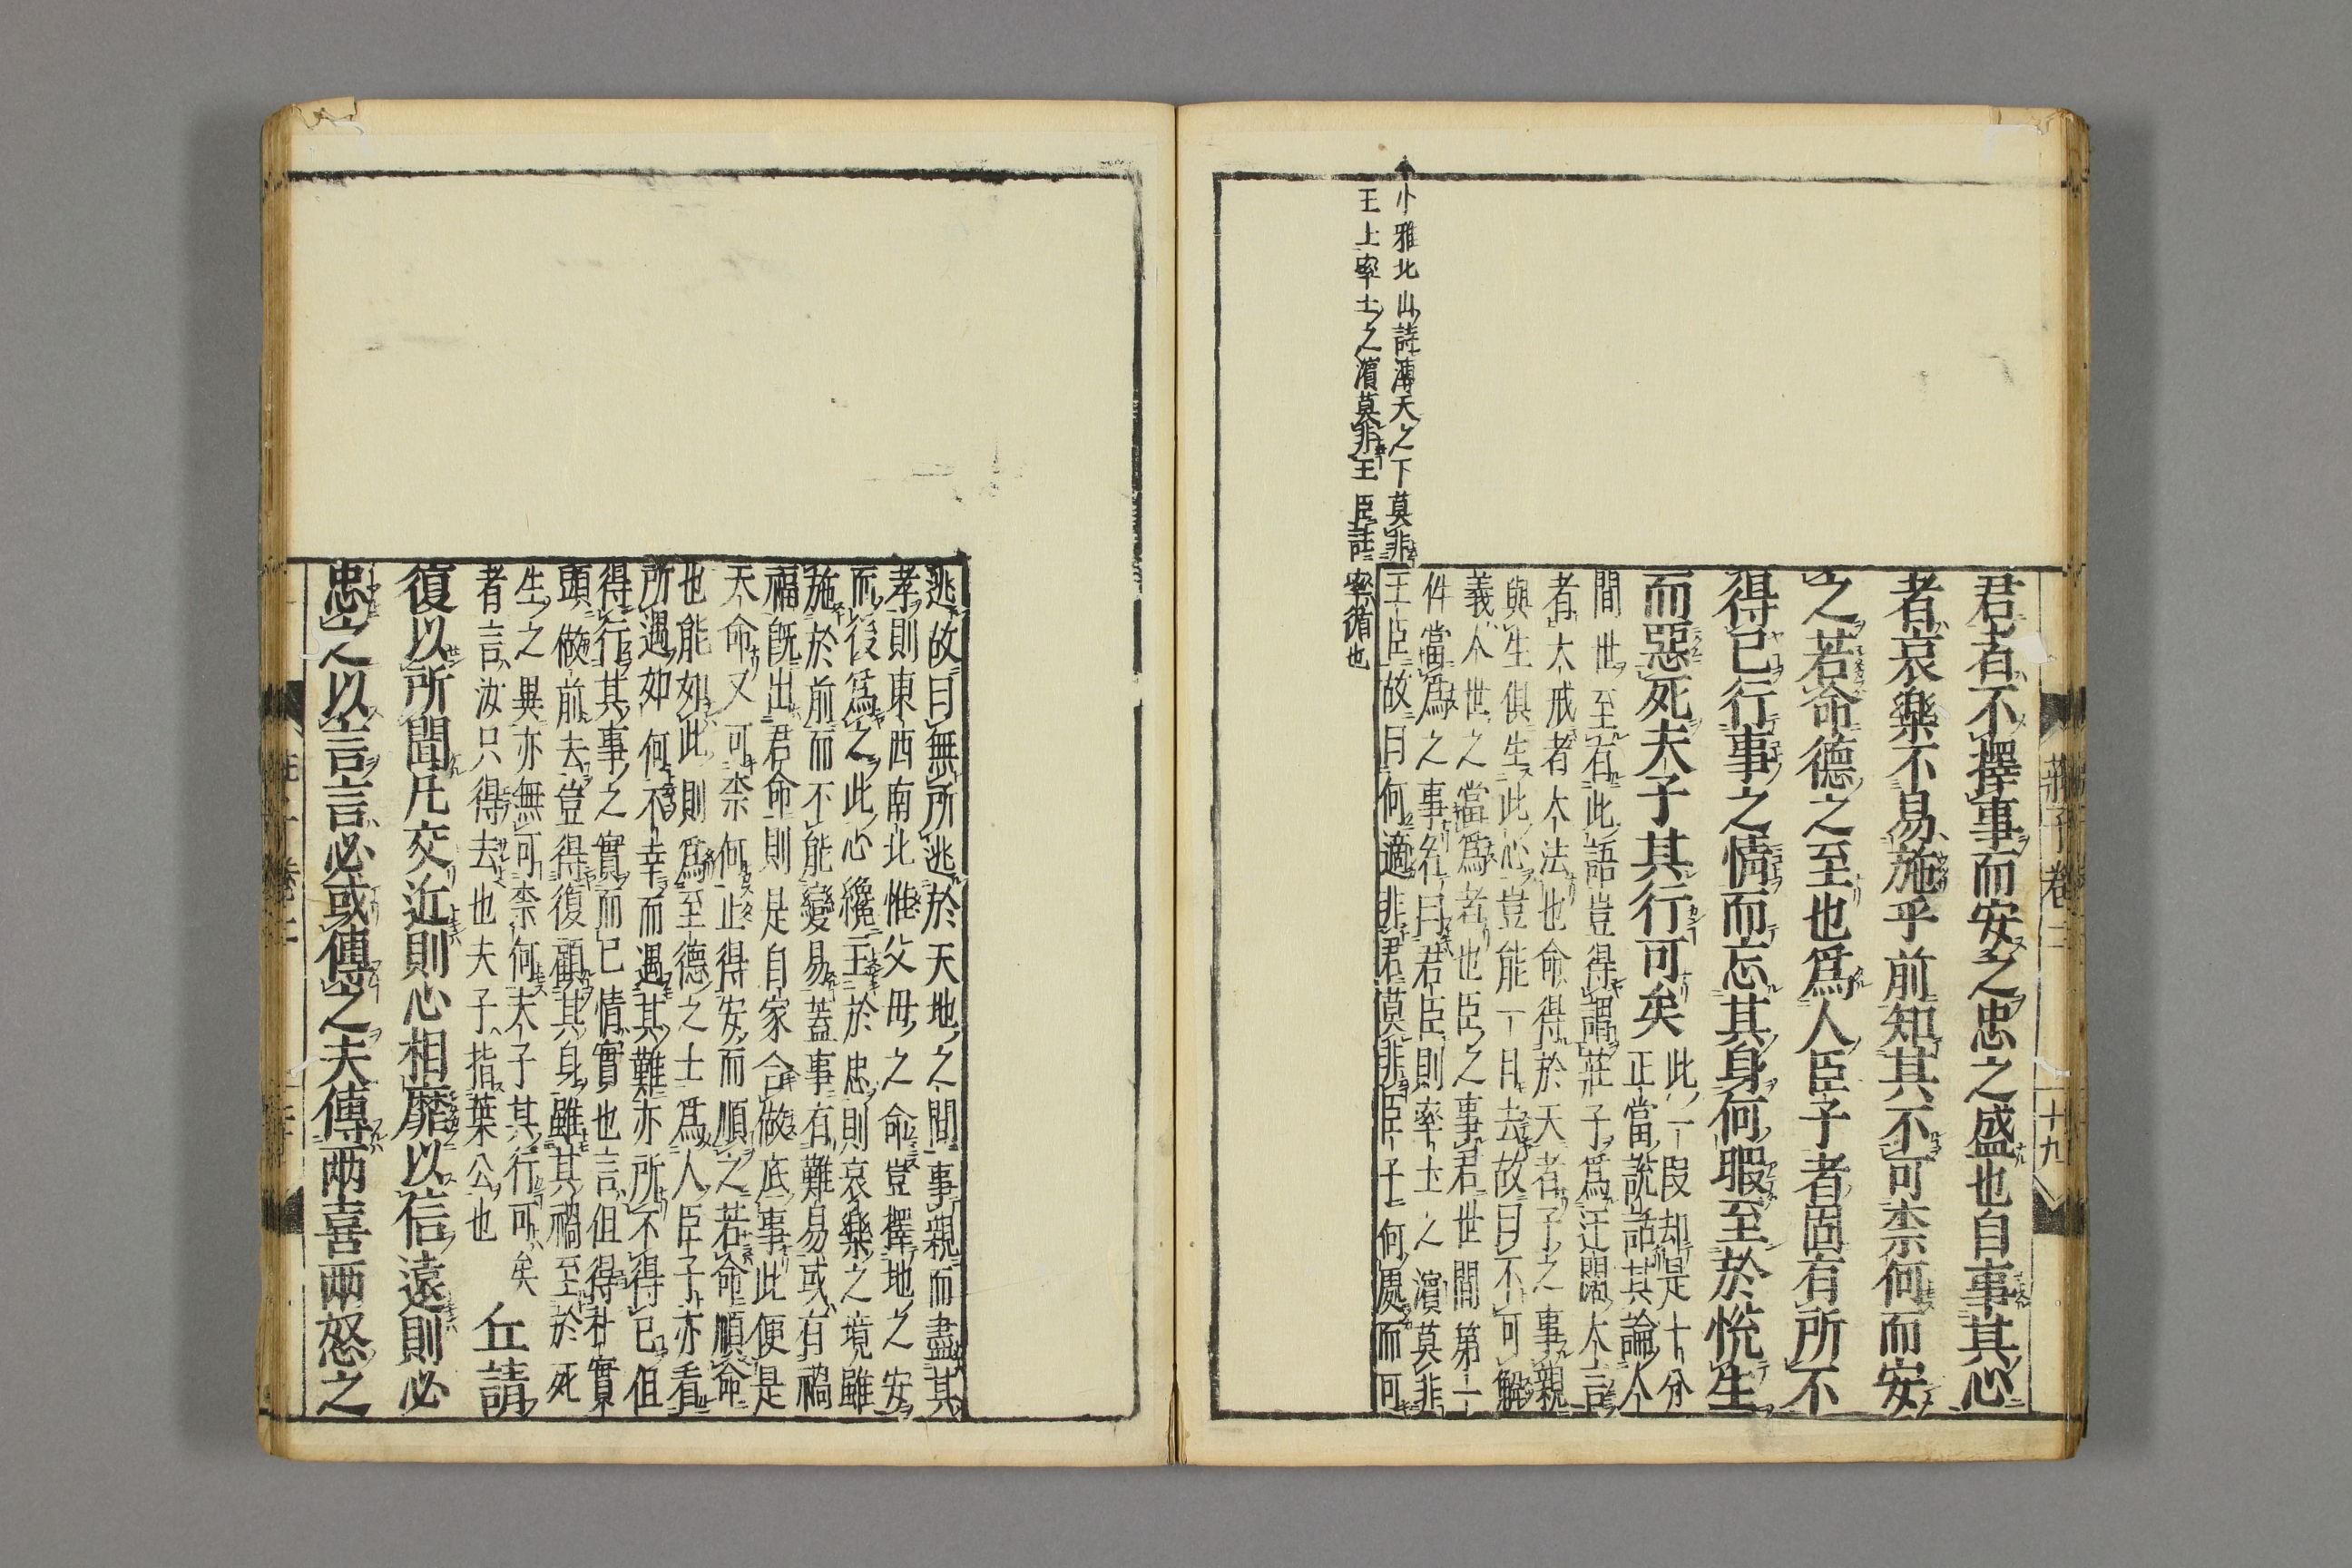 君者不擇事而安之忠之盛也自事其心
者哀樂不易施乎前知其不可柰何而安
之若命德之至也爲人臣子者固有所不
得已行事之情而忘其身何暇至於恱生
而惡死夫子其行可矣
此一叚却是十分
正當説話其論人
間世至有此語豈得謂莊子爲迂闊大言
者大戒者大法也命得於天者子之事親
與生俱生此心豈能一日去故曰不可解
義人世之當爲者也臣之事君世間第一
件當爲之事名曰君臣則率土之濱莫非
王臣故曰何適非君莫非臣子何處而可
小雅北山詩溥天之下莫非
王土率土之濱莫非王臣註率循也
莊子卷二
十九
逃故曰無所逃於天地之間事親而盡其
孝則東西南北惟父母之命豈擇地之安
而後爲之此心纔主於忠則哀樂之境雖
施於前而不能變易蓋事有難易或有禍
福旣出君命則是自家合做底事此便是
天命又可柰何止得安而順之若命順命
也能如此則爲至德之士爲人臣子亦看
所遇如何不幸而遇其難亦所不得已但
得行其事之實而已情實也言但得朴實
頭做前去豈得復顧其身雖其禍至於死
生之異亦無可柰何夫子其行可矣
者言汝只得去也夫子指葉公也
丘請
復以所聞凡交近則必相靡以信遠則必
忠之以言言必或傳之夫傳兩喜兩怒之